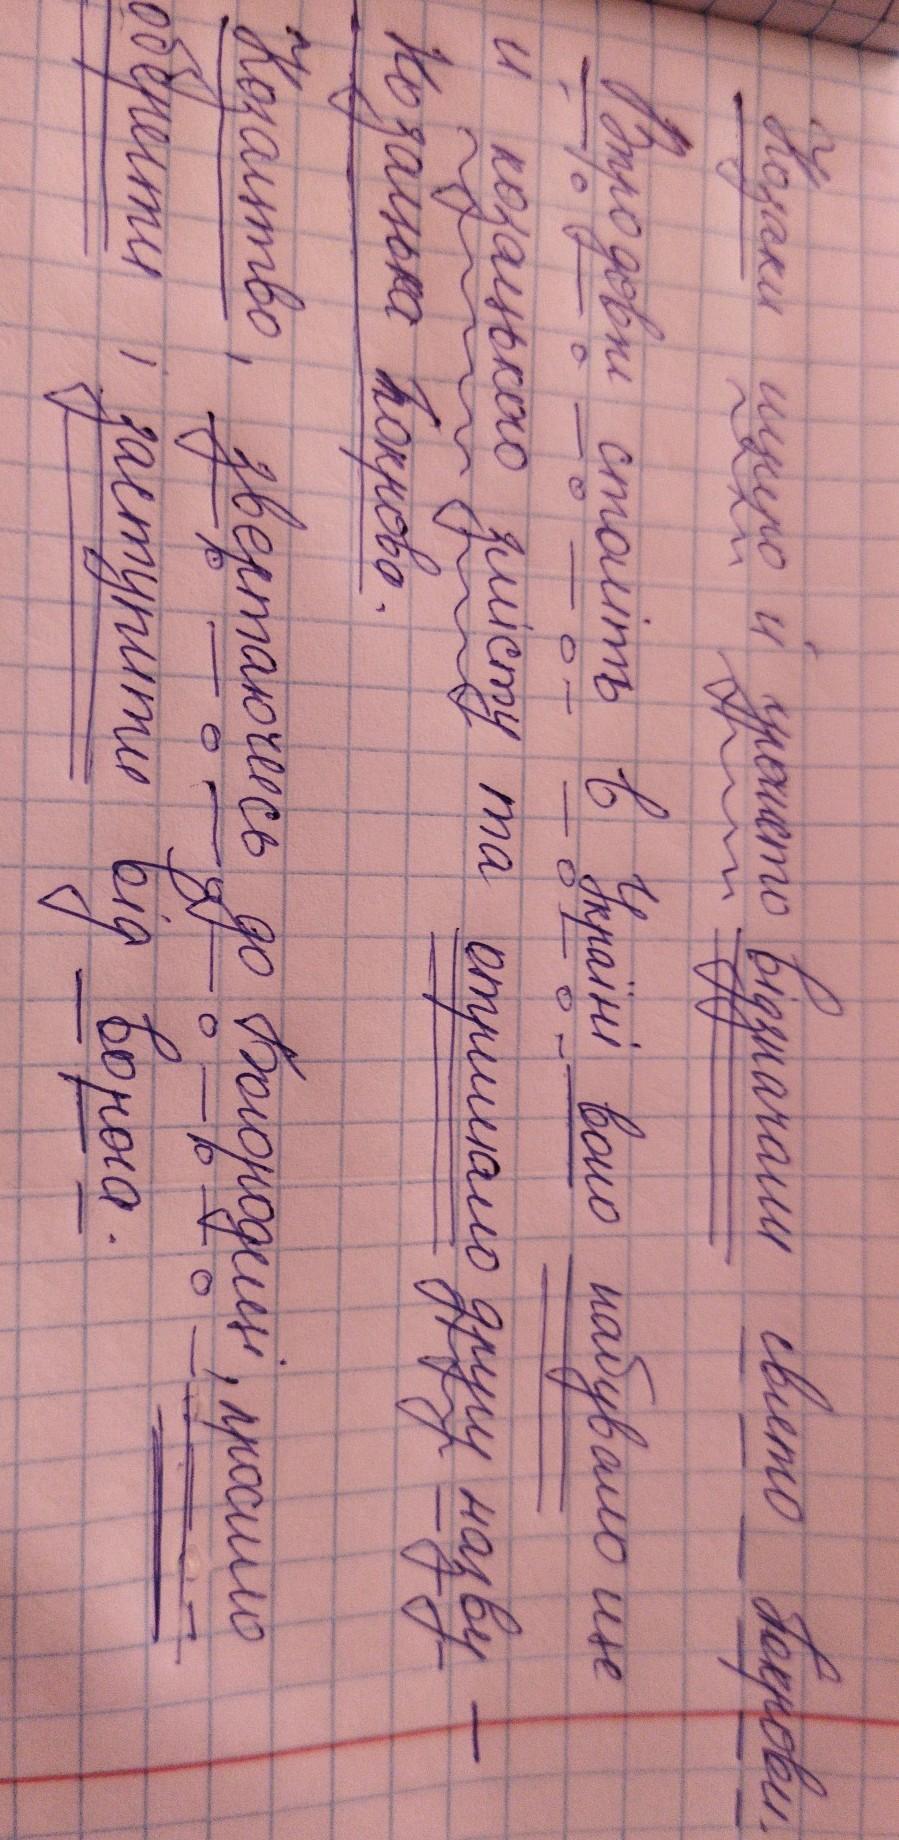 Козаки щиро й урочисто відзначали свято Покрови.
Впродовж століть в Україні воно набувало ще
и козацького змісту та отримало другу назву —
Козацька Покрова.
Козацтво, звертаючесь до Богородиці, просило
оберегти, заступити від ворога.